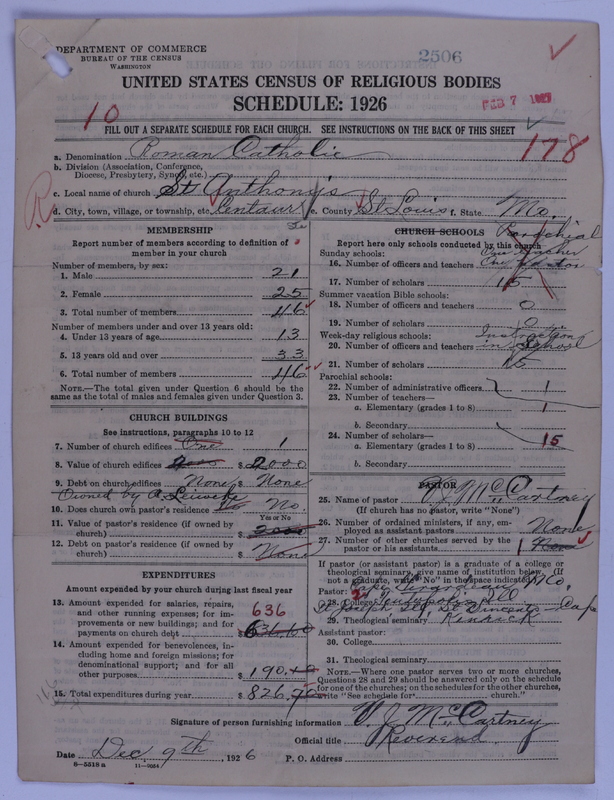 DEPARTMENT OF COMMERCE
BUREAU OF THE CENSUS
WASHINGTON
2506
UNITED STATES CENSUS OF RELIGIOUS BODIES
SCHEDULE: 1926
FEB 7 1927
10
FILL OUT A SEPARATE SCHEDULE FOR EACH CHURCH. SEE INSTRUCTIONS ON THE BACK OF THIS SHEET
178
a. Denomination Roman Catholic
b. Division (Association, Conference, Diocese, Presbytery, Synod, etc.)
c. Local name of church St Anthony's
d. City, town, village, or township, etc. Centaur e. County St Louis f. State Mo.
MEMBERSHIP
Report number of members according to definition of
member in your church
Number of members, by sex:
1. Male 21
2. Female 25
3. Total number of members 46
Number of members under and over 13 years old:
4. Under 13 years of age 13
5. 13 years old and over 33
6. Total number of members 46
NOTE.—The total given under Question 6 should be
the same as the total of males and females given under Question 3.
CHURCH BUILDINGS
See instructions, paragraphs 10 to 12
7. Number of church edifices One 1
8. Value of church edifices 2000 $ 2000
9. Debt on church edifices None $ None
Owned by
10. Does church own pastor's residence No No.
Yes or No
11. Value of pastor's residence (if owned by
church) $ 2000
12. Debt on pastor's residence (if owned by
church) $ None
EXPENDITURES
Amount expended by your church during last fiscal year
13. Amount expended for salaries, repairs,
and other running expenses; for im-
provements or new buildings; and for
payments on church debt $ 636.60
636
14. Amount expended for benevolences, in-
cluding home and foreign missions; for
denominational support; and for all
other purposes $ 190.
15. Total expenditures during year $ 826.
CHURCH SCHOOLS
Parochial
Report here only schools conducted by this church
Sunday schools: One teacher
16. Number of officers and teachers One
17. Number of scholars 15
Summer vacation Bible schools:
18. Number of officers and teachers 0
19. Number of scholars 0
Week-day religious schools: Instruction
20. Number of officers and teachers in School
21. Number of scholars 15
Parochial schools:
22. Number of administrative officers 1
23. Number of teachers—
a. Elementary (grades 1 to 8) 1
b. Secondary
24. Number of scholars—
a. Elementary (grades 1 to 8) 15
b. Secondary
PASTOR
25. Name of pastor V. J. McCartney
(If church has no pastor, write "None")
26. Number of ordained ministers, if any, em-
ployed as assistant pastors None
27. Number of other churches served by the
pastor or his assistants 1 None
If pastor (or assistant pastor) is a graduate of a college or
theological seminary, give name of institution below. (If
not a graduate, write "No" in the space indicated.)
Pastor: Cape Girardeau Mo.
28. College St Vincents Cape
29. Theological seminary Kenrick
Assistant pastor:
30. College
31. Theological seminary
NOTE.—Where one pastor serves two or more churches,
Questions 28 and 29 should be answered only on the schedule
for one of the churches; on the schedules for the other churches,
write "See schedule for
Signature of person furnishing information V. J. McCartney
Official title Reverend
Date Dec. 9th, 1926
P. O. Address
8—5518 a
11—9054